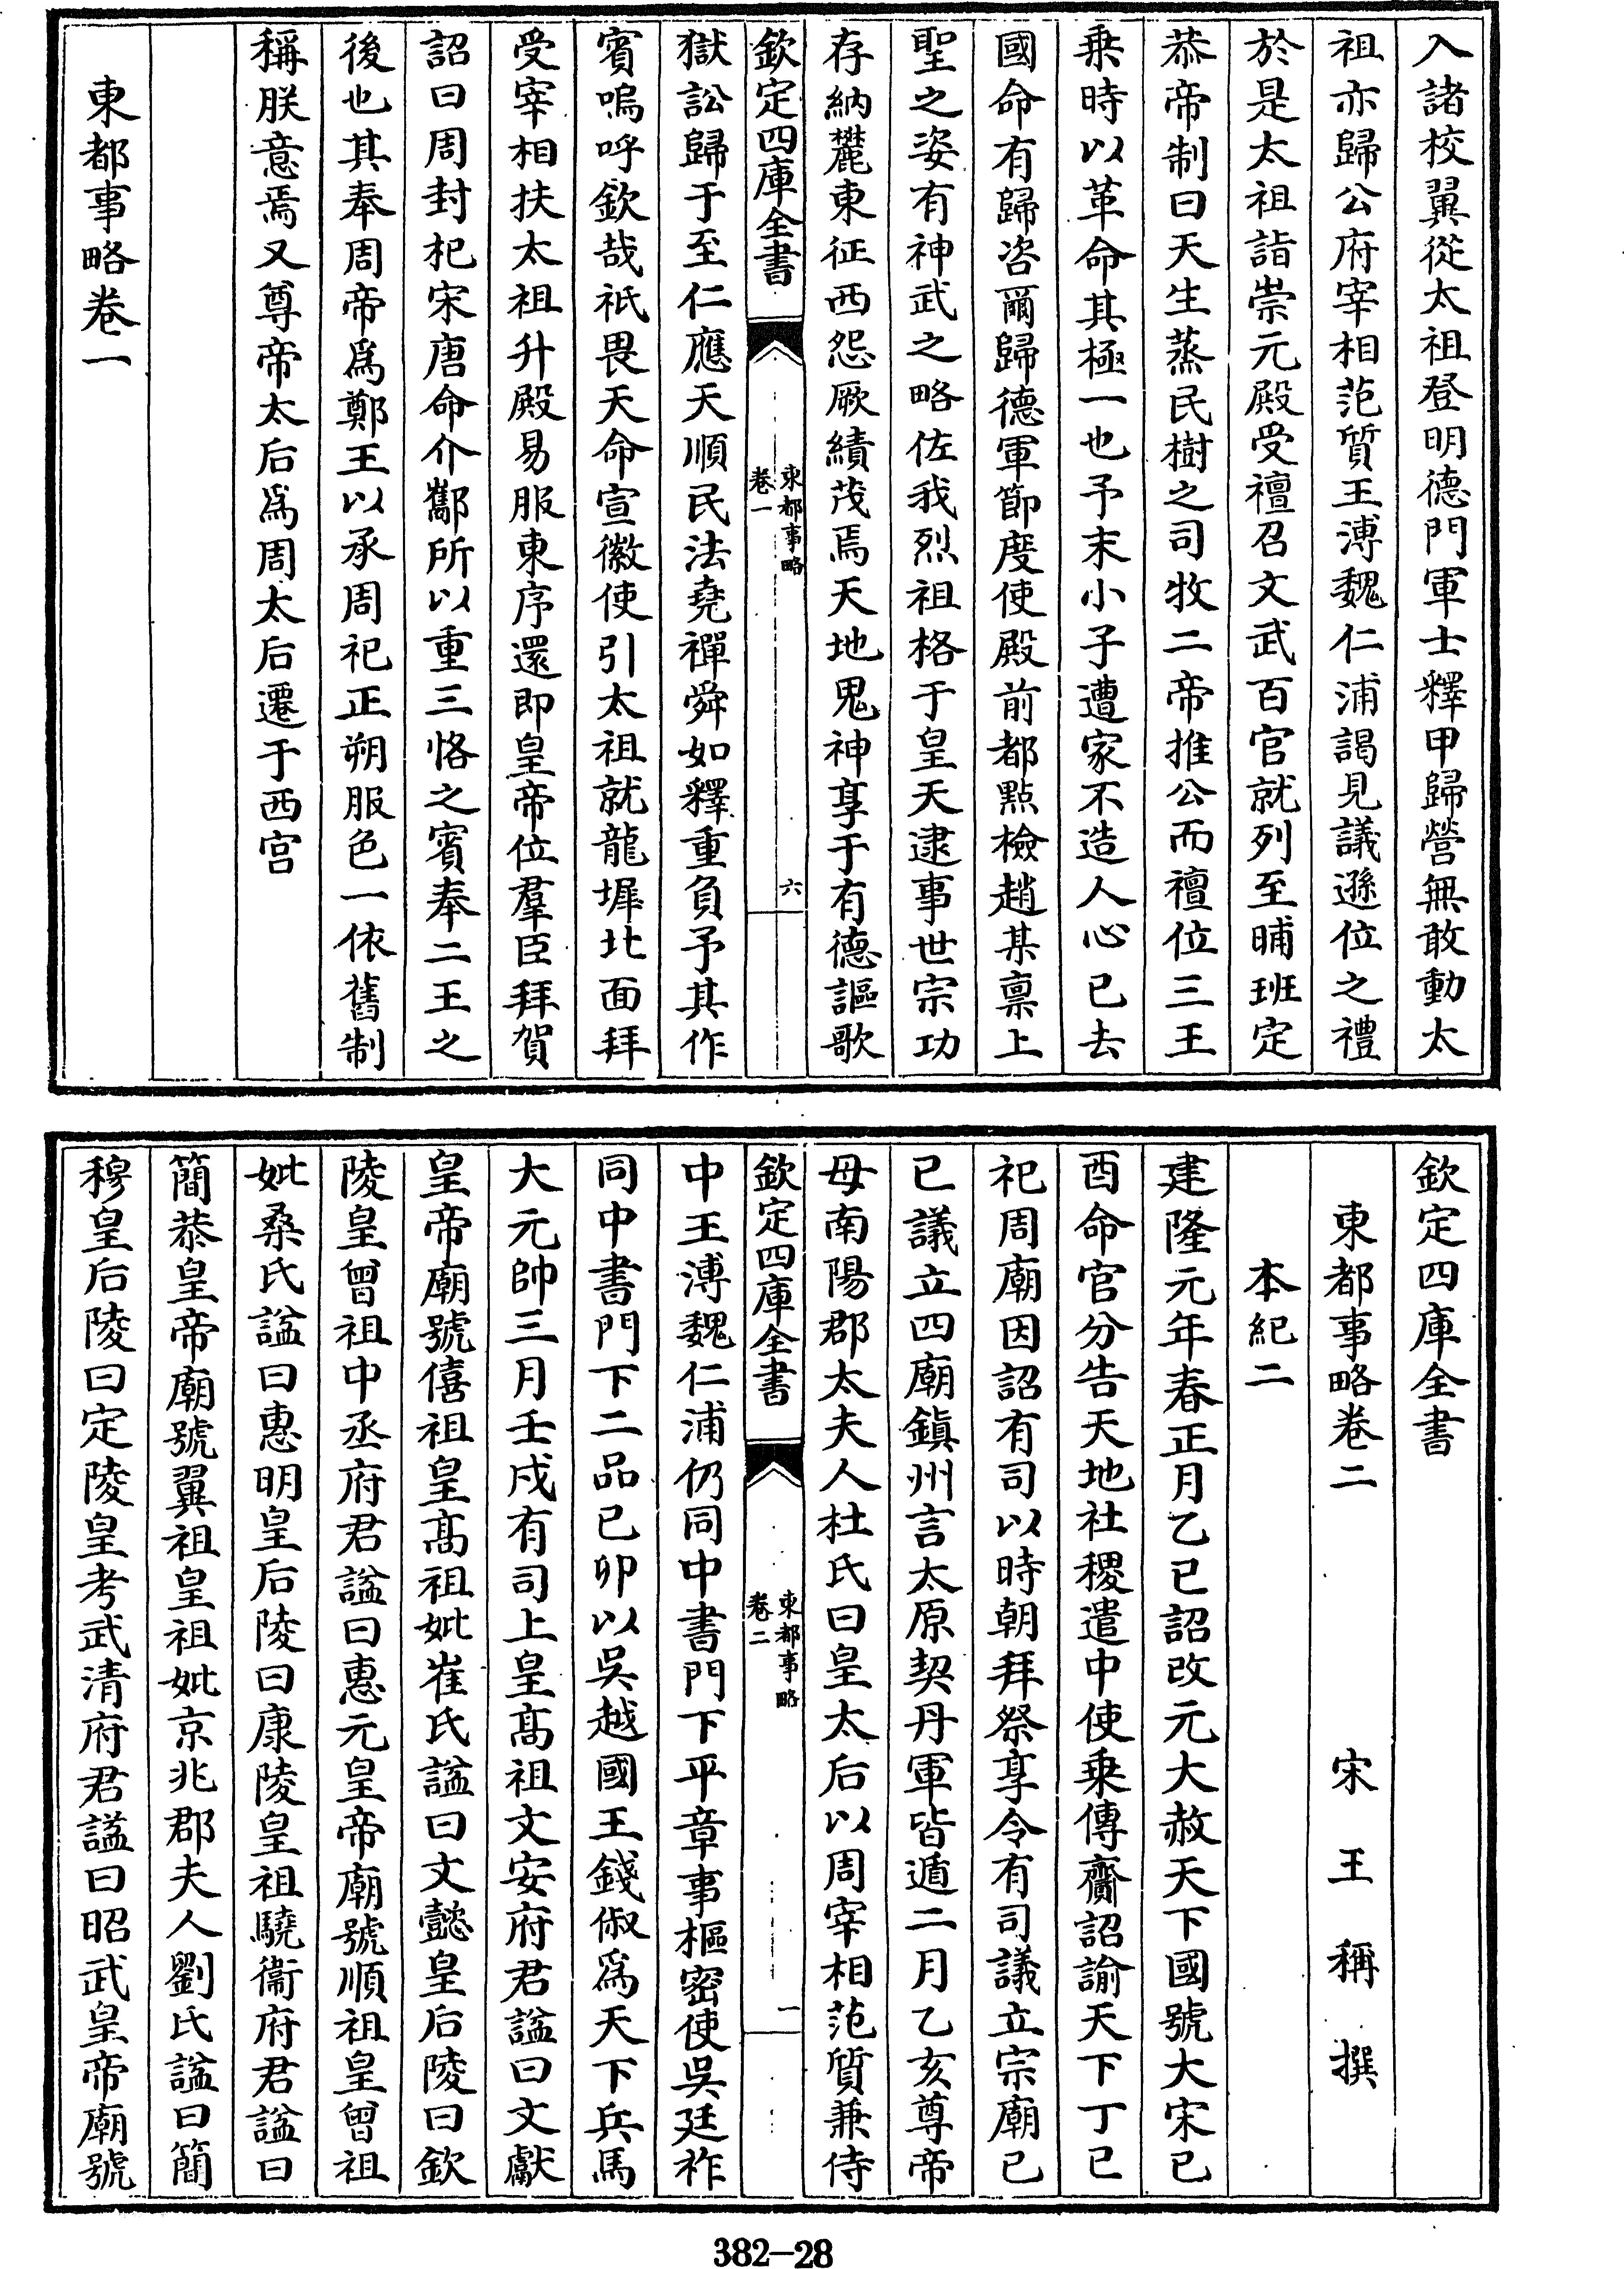 入諸校翼從太祖登明德門軍士釋甲歸營無敢動太
祖亦歸公府宰相范質王溥魏仁浦謁見議遜位之禮
於是太祖詣崇元殿受禪召文武百官就列至晡班定
恭帝制曰天生蒸民樹之司牧二帝推公而禪位三王
乗時以革命其極一也予末小子遭家不造人心已去
國命有歸咨爾歸德軍節度使殿前都點檢趙某禀上
聖之姿有神武之略佐我烈祖格于皇天逮事世宗功
存納麓東征西怨厥績茂焉天地鬼神享于有德謳歌
欽定四庫全書
東都事略
卷一
六
獄訟歸于至仁應天順民法堯禪舜如釋重負予其作
賓嗚呼欽哉祗畏天命宣徽使引太祖就龍墀北面拜
受宰相扶太祖升殿易服東序還即皇帝位羣臣拜賀
詔曰周封杞宋唐命介酅所以重三恪之賓奉二王之
後也其奉周帝爲鄭王以承周祀正朔服色一依舊制
稱朕意焉又尊帝太后爲周太后遷于西宫
東都事略卷一
欽定四庫全書
東都事略卷二 宋 王稱 撰
本紀二
建隆元年春正月乙巳詔改元大赦天下國號大宋已
酉命官分告天地社稷遣中使乗傳齎詔諭天下丁已
祀周廟因詔有司以時朝拜祭享令有司議立宗廟已
已議立四廟鎮州言太原契丹軍皆遁二月乙亥尊帝
母南陽郡太夫人杜氏曰皇太后以周宰相范質兼侍
欽定四庫全書
東都事略
卷二
一
中王溥魏仁浦仍同中書門下平章事樞密使吳廷祚
同中書門下二品已卯以吳越國王錢俶爲天下兵馬
大元帥三月壬戌有司上皇髙祖文安府君諡曰文獻
皇帝廟號僖祖皇髙祖妣崔氏諡曰文懿皇后陵曰欽
陵皇曾祖中丞府君諡曰惠元皇帝廟號順祖皇曾祖
妣桑氏諡曰惠明皇后陵曰康陵皇祖驍衞府君諡曰
簡恭皇帝廟號翼祖皇祖妣京兆郡夫人劉氏諡曰簡
穆皇后陵曰定陵皇考武清府君諡曰昭武皇帝廟號
382-28